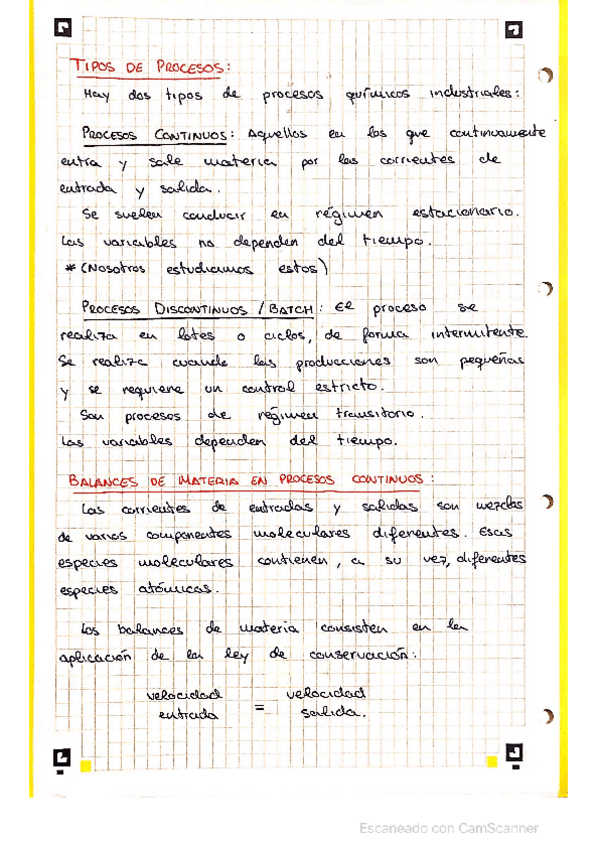 TIPOS DE PROCESOS:
Hay dos tipos de procesos químicos industriales:
PROCESOS CONTINUOS: Aquellos en los que continuamente
entra y sale materia por las corrientes de
entrada y salida.
Se suelen conducir en régimen estacionario.
Las variables no dependen del tiempo.
* (Nosotros estudiamos estos)
PROCESOS DISCONTINUOS / BATCH: El proceso se
realiza en lotes o ciclos, de forma intermitente.
Se realiza cuando las producciones son pequeñas
y se requiere un control estricto.
Son procesos de régimen transitorio.
Las variables dependen del tiempo.
BALANCES DE MATERIA EN PROCESOS CONTINUOS:
Las corrientes de entradas y salidas son mezclas
de varios componentes moleculares diferentes. Esas
especies moleculares contienen, a su vez, diferentes
especies atómicas.
Los balances de materia consisten en la
aplicación de la ley de conservación:
velocidad entrada = velocidad salida.
Escaneado con CamScanner